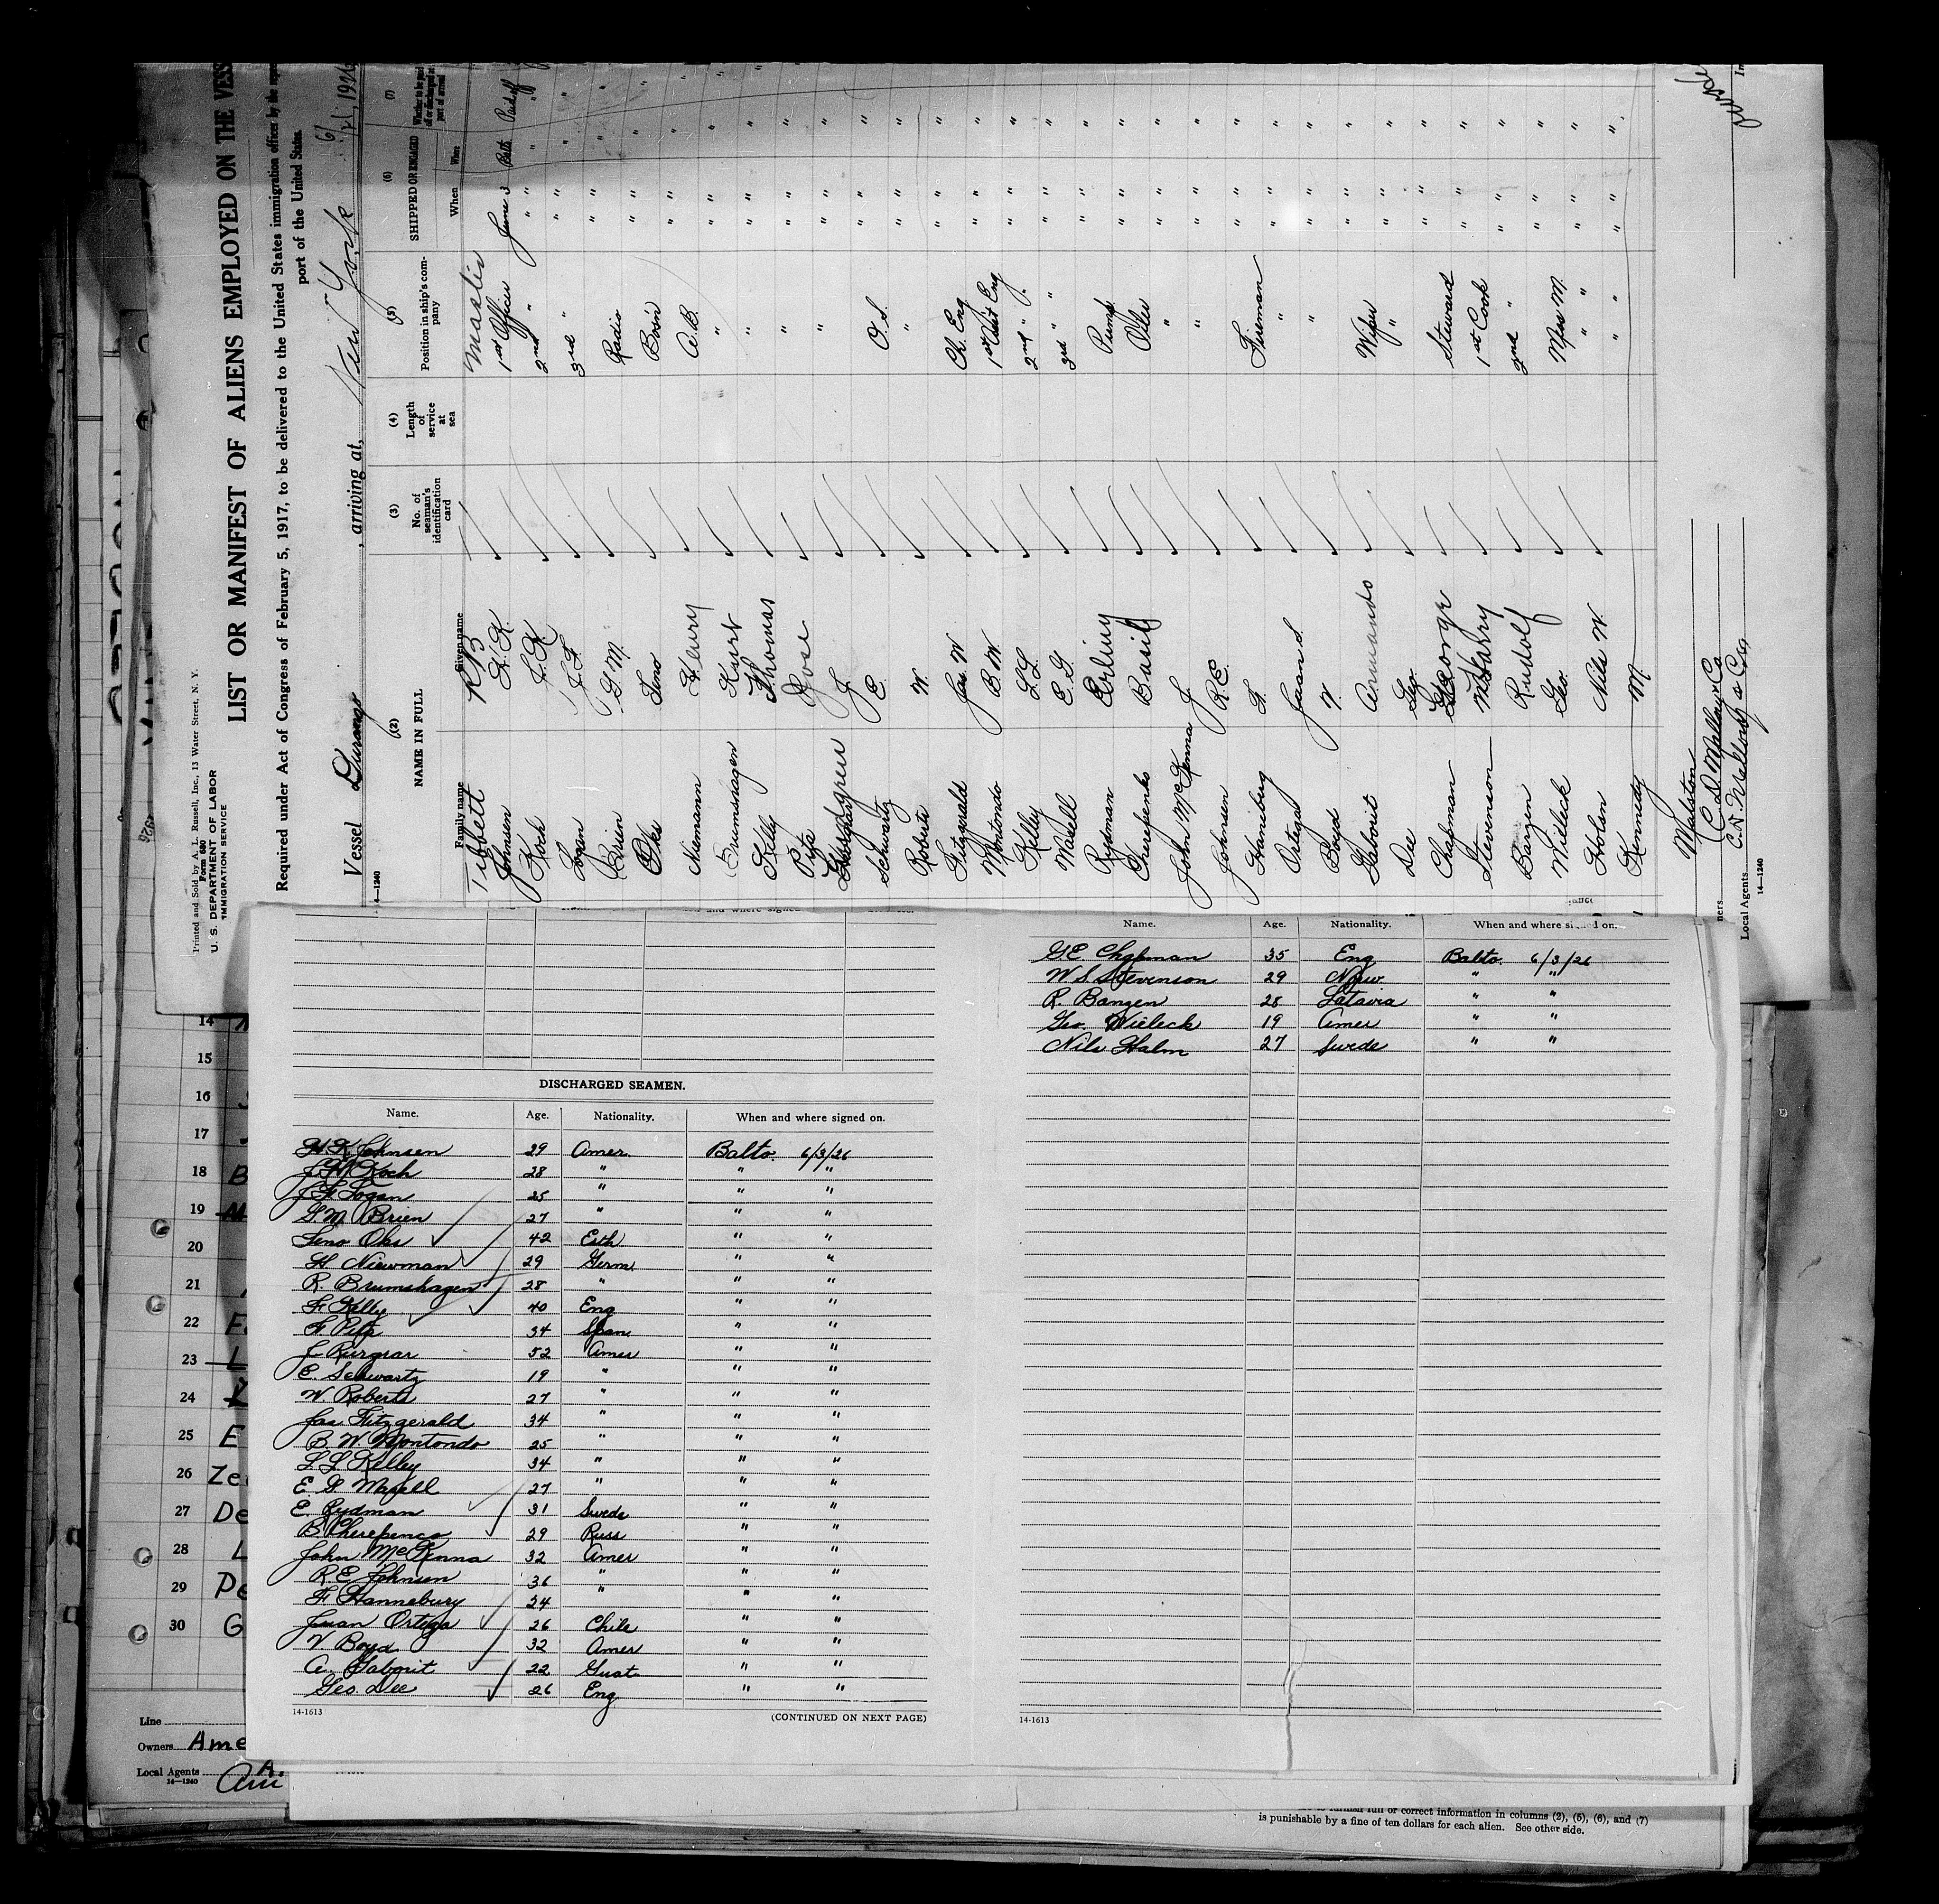 Printed and Sold by A. L. Russell, Inc., 13 Water Street, N. Y.
Form 680
U. S. DEPARTMENT OF LABOR
IMMIGRATION SERVICE
LIST OR MANIFEST OF ALIENS EMPLOYED ON THE VESS
Required under Act of Congress of February 5, 1917, to be delivered to the United States immigration officer by the
port of the United States.
Vessel Durango, arriving at, New York 1926
14—1240
(2) (3) (4) (5) (6) (7)
NAME IN FULL
No. of seaman's identification card
Length of service at sea
Position in ship's company
SHIPPED OR ENGAGED
Whether to be paid off or discharged at port of arrival
Family name Given name When Where
Tibbett R B Master
Johnsen H. K. 1st Officer June 3 Balto Paid off
Koch J. H. 2nd " " " " "
Logan J. F. 3rd " " " " "
O'Brien G. M. Radio " " " "
Oks Seno Bosn " " "
Niemann Henry A. B. " " "
Brumshagen Kurt " " " "
Kelly Thomas " " " "
Pita Jose " " " "
J " " " "
Schwartz E. O. S. " " "
Roberts W. " " " "
Fitzgerald Jas. W Ch. Eng " " "
Montondo B. W. 1st Asst Eng " " "
Kelley L L 2nd " " " " "
Masell E. G 3rd " " " " "
Rydman Erling Pump " " "
Cherepenko Basil Oiler " " "
John McKenna J " " " "
Johnsen R. E. " " " "
Hanneburg F. Fireman " " "
Ortega Juan " " " "
Boyd V. " " " "
Gaborit Armando Wiper " " "
Dee Geo " " " "
Chapman George Steward " " "
Stevenson W Harry 1st Cook " " "
Banzen Rudolf 2nd " " " "
Wieleck Geo. Mess M. " " "
Holm Nils W. " " " " "
Kennedy M. " " " " "
Marston
C D Mallory & Co
Local Agents C. D. Mallory & Co
14—1240
DISCHARGED SEAMEN.
Name. Age. Nationality. When and where signed on.
H. K. Johnsen 29 Amer. Balto. 6/3/26
J. H. Koch 28 " " "
J. F. Logan 25 " " "
G. M. O'Brien 27 " " "
Seno Oks 42 Esth " "
H. Niewman 29 Germ. " "
R. Brumshagen 28 " " "
T. Kelly 40 Eng " "
F. Pita 34 Span. " "
J 52 Amer " "
E. Schwartz 19 " " "
W. Roberts 27 " " "
Jas Fitzgerald 34 " " "
B. W. Montondo 25 " " "
L. L. Kelley 34 " " "
E. G. Masell 27 " " "
E. Rydman 31 Swede " "
B. Cherepenco 29 Russ " "
John McKenna 32 Amer " "
R. E. Johnsen 36 " " "
F. Hannebury 24 " " "
Juan Ortega 26 Chile " "
V Boyd 32 Amer " "
A. Gaborit 22 Guat. " "
Geo. Dee 26 Eng " "
14-1613 (CONTINUED ON NEXT PAGE)
Name. Age. Nationality. When and where signed on.
G E Chapman 35 Eng Balto. 6/3/26
W. S. Stevenson 29 Norw. " "
R. Banzen 28 Latavia " "
Geo. Wieleck 19 Amer " "
Nils Halm 27 Swede " "
14-1613
14
15
16
17
18 B
19
20
21
22 F
23 L
24
25 E
26 Ze
27 De
28 L
29 Pe
30 G
Line
Owners Ame
Local Agents
14—1240
full or correct information in columns (2), (5), (6), and (7)
is punishable by a fine of ten dollars for each alien. See other side.